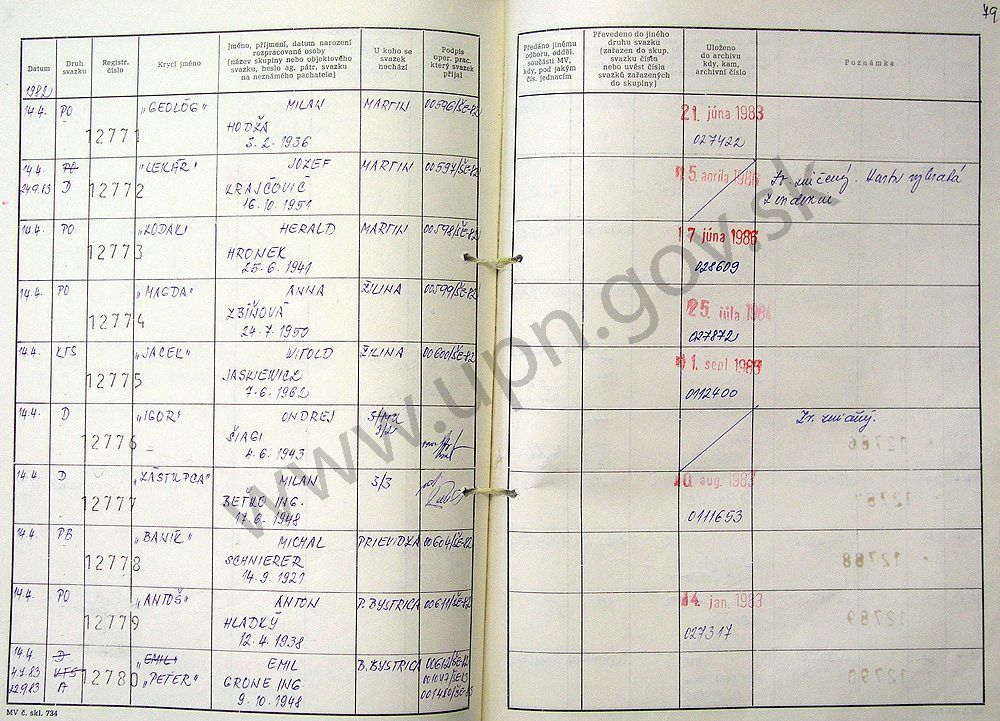 79
Datum
Druh svazku
Registr. číslo
Krycí jméno
Jméno, příjmení, datum narození
rozpracované osoby
(název skupiny nebo objektového
svazku, heslo ag. pátr. svazku
na neznámého pachatele)
U koho se
svazek
nachází
Podpis
oper. prac.
který svazek
přijal
Předáno jinému
odboru, odděl.
součásti MV,
kdy, pod jakým
čís. jednacím
Převedeno do jiného
druhu svazku
(zařazen do skup.
svazku číslo
nebo uvést čísla
svazků zařazených
do skupiny)
Uloženo
do archivu
kdy, kam,
archivní číslo
Poznámka
1982
14.4. PO 12771 „GEOLÓG" MILAN MARTIN 00596/ŠE-82 21. júna 1983
HODŽA 027422
3. 2. 1936
14.4. PO „LEKÁR" JOZEF MARTIN 00597/ŠE-82 15. apríla 1986 Zv. zničený. Karta vybratá
24.9.83 D 12772 KRAJČOVIC z indexu
16. 10. 1951
14.4. PO 12773 „KODAK" HERALD MARTIN 00598/ŠE-82 17 júna 1986
HRONEK 028609
25. 6. 1941
14.4. PO 12774 „MAGDA" ANNA ŽILINA 00599/ŠE-82 25. júla 1984
ZBÍŇOVÁ 027872
24. 7. 1950
14.4. KTS 12775 „JACEK" WITOLD ŽILINA 00600/ŠE-82 11. sept 1983
JASKIEWICZ 0112400
7. 6. 1962
14.4. D 12776 „IGOR" ONDREJ Zv. zničený.
ŠIAGI
4. 6. 1943
14.4. D 12777 „ZÁSTUPCA" MILAN S/3 aug. 1983
BETKO ING. 0111653
17. 6. 1948
14.4. PB 12778 „BANÍK" MICHAL PRIEVIDZA 00604/ŠE-82
SCHNIERER
14. 9. 1921
14.4. PO 12779 „ANTOŠ" ANTON P. BYSTRICA 00611/ŠE-82 14. jan. 1983
HLADKÝ 027317
12. 4. 1938
14.4. D „EMIL" EMIL B. BYSTRICA 00612/ŠE-82
4.7.83 KTS 12780 „PETER" GRONE ING. 001047/ŠE-83
22.9.83 A 9. 10. 1948 001480/ŠE-83
12786
12787
12788
12789
12790
MV č. skl. 734
www.upn.gov.sk